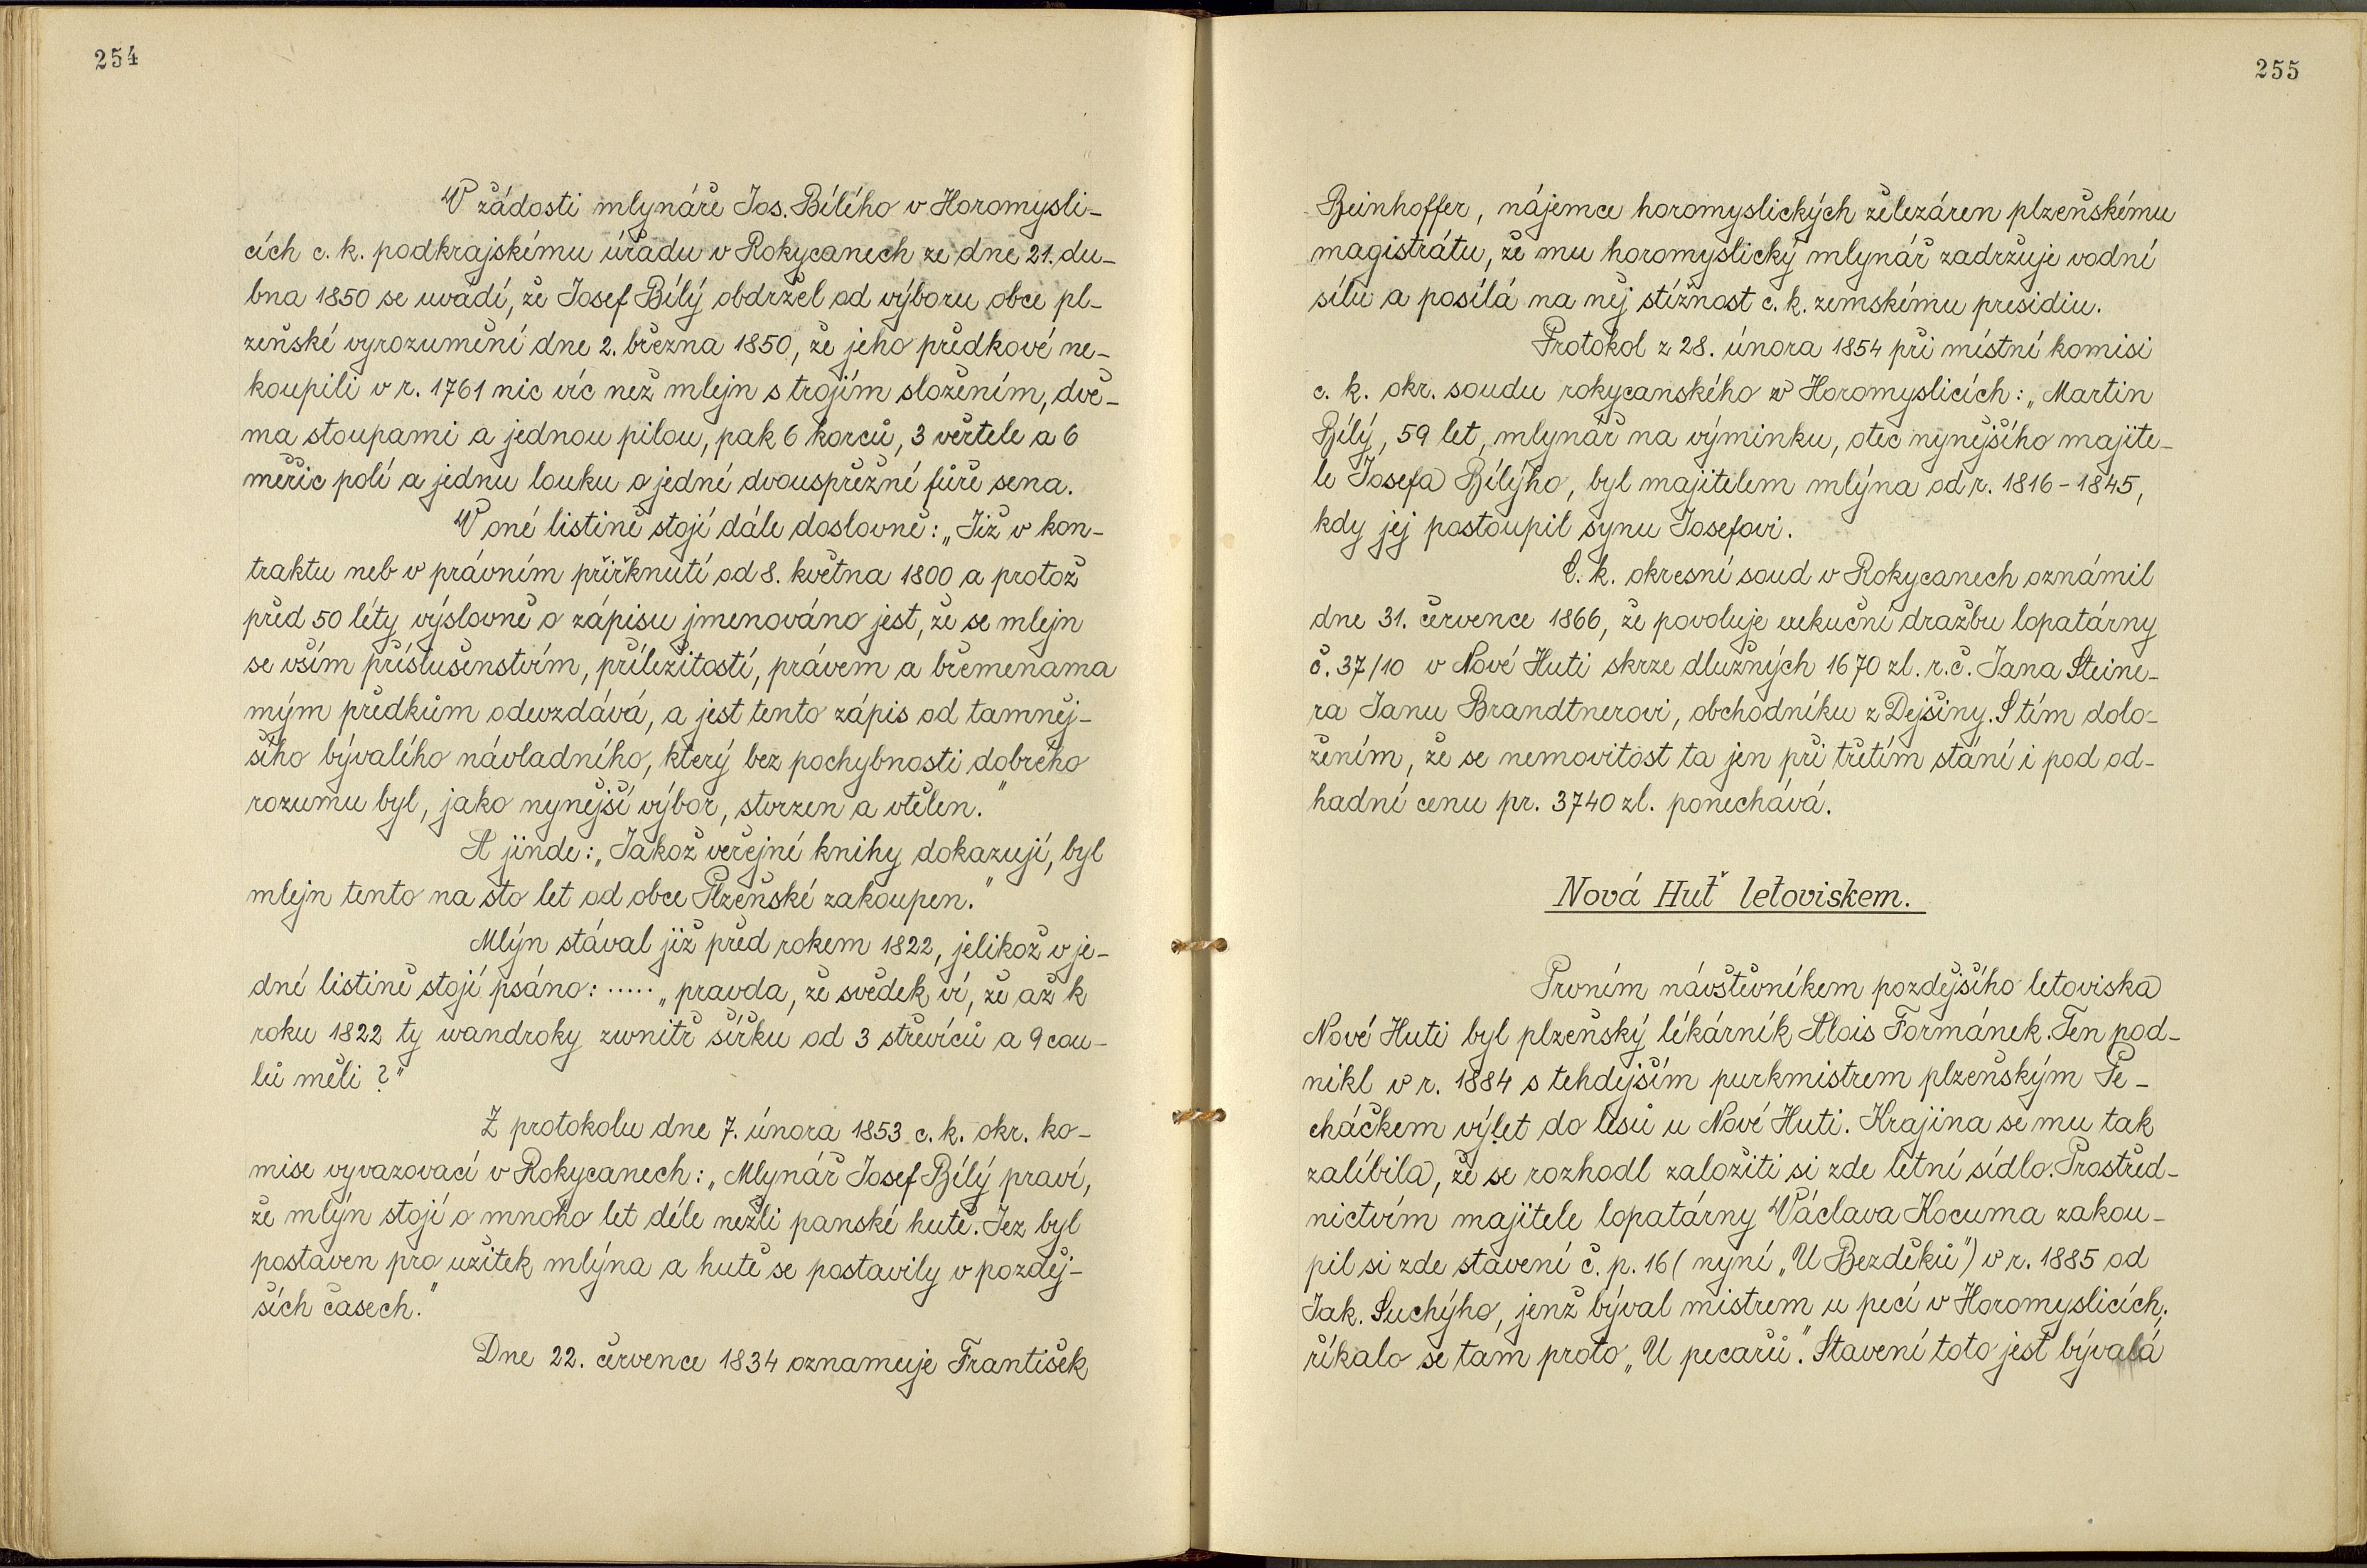 254
V žádosti mlynáře Jos. Bílího v Horomysli-
cích c. k. podkrajskému úřadu v Rokycanech ze dne 21. du-
bna 1850 se uvádí, že Josef Bílý obdržel od výboru obce pl-
zeňské vyrozumění dne 2. března 1850, že jeho předkové ne-
koupili v r. 1761 nic víc než mlejn s trojím složením, dvě-
ma stoupami a jednou pilou, pak 6 korců, 3 věrtele a 6
měřic polí a jednu louku o jedné dvouspřežné fůře sena.
V oné listině stojí dále doslovně: „Již v kon-
traktu neb v právním přiřknutí od 8. května 1800 a protož
před 50 léty výslovně o zápisu jmenováno jest, že se mlejn
se vším příslušenstvím, příležitostí, právem a břemenama
mým předkům odevzdává, a jest tento zápis od tamněj-
šího bývalého návladního, který bez pochybnosti dobrého
rozumu byl, jako nynější výbor, stvrzen a vtělen."
A jinde: „Jakož veřejné knihy dokazují, byl
mlejn tento na sto let od obce Plzeňské zakoupen."
Mlýn stával již před rokem 1822, jelikož v je-
dné listině stojí psáno: ..... „pravda, že svědek ví, že až k
roku 1822 ty wandroky zwnitř šířku od 3 střevíců a 9 cou-
lů měli?"
Z protokolu dne 7. února 1853 c. k. okr. ko-
mise vyvazovací v Rokycanech: „Mlynář Josef Bílý praví,
že mlýn stojí o mnoho let déle nežli panské hutě. Jez byl
postaven pro užitek mlýna a hutě se postavily v pozděj-
ších časech."
Dne 22. července 1834 oznamuje František
255
Beinhoffer, nájemce horomyslických železáren plzeňskému
magistrátu, že mu horomyslický mlynář zadržuje vodní
sílu a posílá na něj stížnost c. k. zemskému presidiu.
Protokol z 28. února 1854 při místní komisi
c. k. okr. soudu rokycanského v Horomyslicích: „Martin
Bílý, 59 let, mlynář na výminku, otec nynějšího majite-
le Josefa Bílýho, byl majitelem mlýna od r. 1816-1845,
kdy jej postoupil synu Josefovi.
C. k. okresní soud v Rokycanech oznámil
dne 31. července 1866, že povoluje exekuční dražbu lopatárny
č. 37/10 v Nové Huti skrze dlužných 1670 zl. r.č. Jana Steine-
ra Janu Brandtnerovi, obchodníku z Dejšiny. S tím dolo-
žením, že se nemovitost ta jen při třetím stání i pod od-
hadní cenu pr. 3740 zl. ponechává.
Nová Huť letoviskem.
Prvním návštěvníkem pozdějšího letoviska
Nové Huti byl plzeňský lékárník Alois Formánek. Ten pod-
nikl v r. 1884 s tehdejším purkmistrem plzeňským Pe-
cháčkem výlet do lesů u Nové Huti. Krajina se mu tak
zalíbila, že se rozhodl založiti si zde letní sídlo. Prostřed-
nictvím majitele lopatárny Václava Kocuma zakou-
pil si zde stavení č. p. 16 (nyní „U Bezděků") v r. 1885 od
Jak. Suchýho, jenž býval mistrem u pecí v Horomyslicích;
říkalo se tam proto „U pecařů". Stavení toto jest bývalá